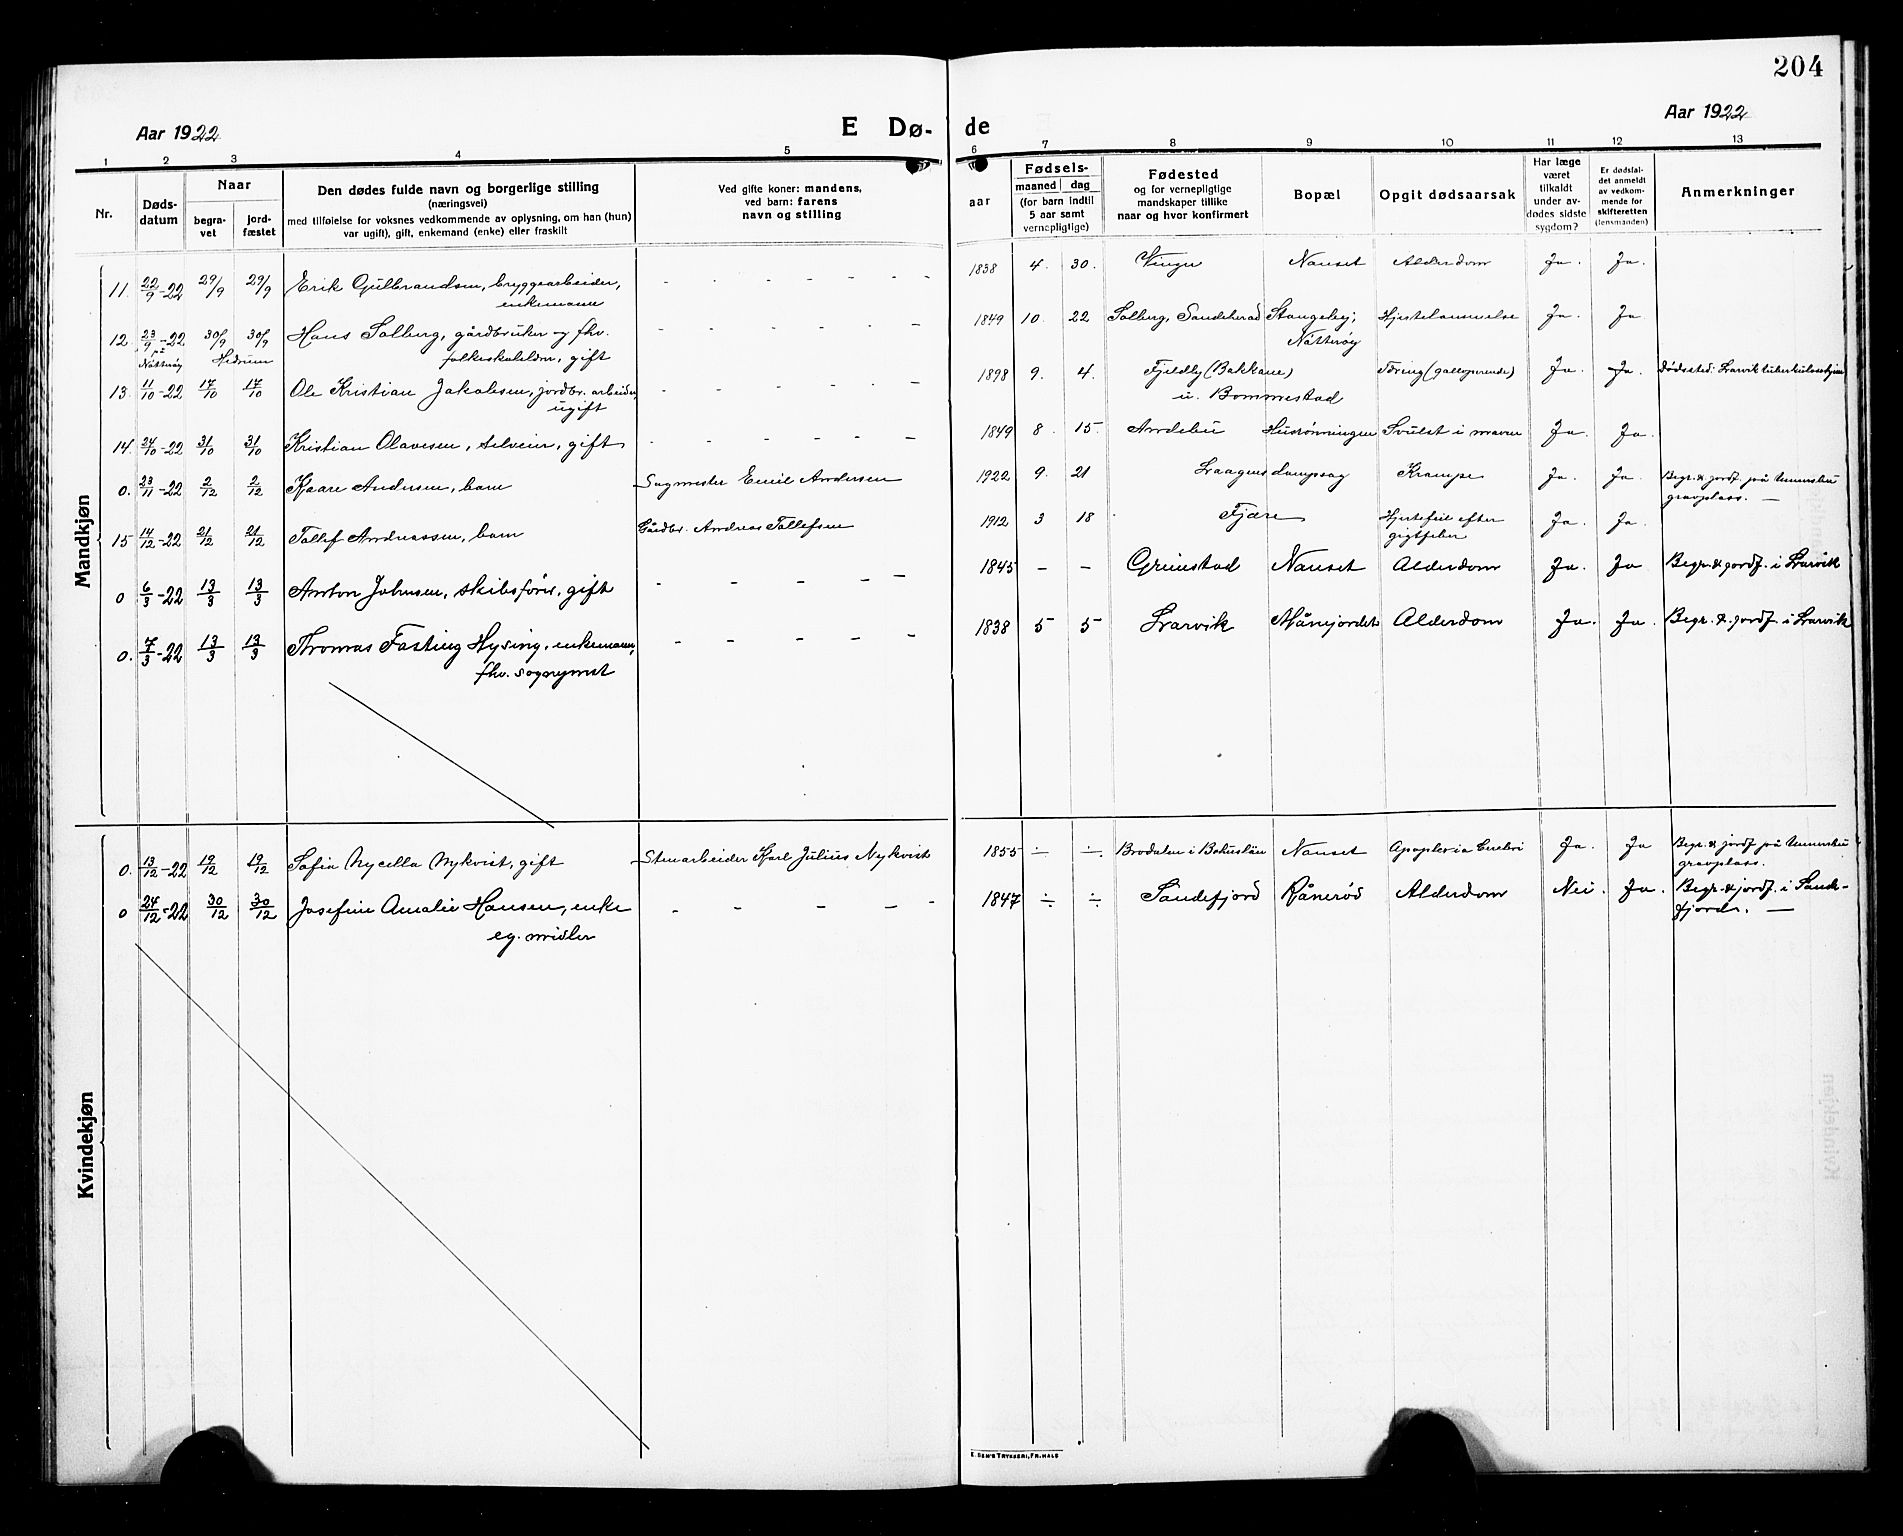 204
Aar 1922
E Dø- de
Aar 1922
1 2 3 4 5 6 7 8 9 10 11 12 13
Nr.
Døds-
datum
Naar
begra-
vet
jord-
fæstet
Den dødes fulde navn og borgerlige stilling
(næringsvei)
med tilføielse for voksnes vedkommende av oplysning, om han (hun)
var ugift), gift, enkemand (enke) eller fraskilt
Ved gifte koner: mandens,
ved barn: farens
navn og stilling
aar
Fødsels-
maaned dag
(for barn indtil
5 aar samt
vernepligtige)
Fødested
og for vernepligtige
mandskaper tillike
naar og hvor konfirmert
Bopæl
Opgit dødsaarsak
Har læge
været
tilkaldt
under av-
dødes sidste
sygdom?
Er dødsfal-
det anmeldt
av vedkom-
mende for
skifteretten
(lensmanden)
Anmerkninger
Mandkjøn
11. 22/9-22 29/9 29/9 Erik Gulbrandsen, bryggearbeider, - - - - - 1838 4. 30. Vinger Nanset Alderdom Ja. Ja.
enkemann
12 23/9-22 30/9 30/9 Hans Solberg, gårdbruker og fhv. - - - - - 1849 10. 22 Solberg, Sandeherad Stangeby, Hjertelammelse Ja Ja
på Nøtterøy Hedrum folkeskolelærer, gift Nøtterøy
13. 11/10-22 17/10 17/10 Ole Kristian Jakobsen, jordbr. arbeider - - - - - 1898 9. 4. Fjeldby (Bakkane) Tæring (galloperende) Ja. Ja. Dødssted: Larvik tuberkulosehjem
ugift u. Bommestad
14. 24/10-22 31/10 31/10 Kristian Olavesen, selveier, gift - - - - - 1849 8. 15. Andebu Svulst i maven Ja. Ja.
0. 23/11-22 2/12 2/12 Kaare Andersen, barn Sagmester Emil Andersen 1922 9. 21 Laagens dampsag Krampe Ja. Ja. Begr. & jordf. på
gravplass. —
15 14/12-22 21/12 21/12 Tollef Andreassen, barn Gårdbr. Andreas Tollefsen 1912 3 18 Fjære Hjertefeil efter Ja. Ja.
gigtfeber
0 6/3-22 13/3 13/3 Anton Johnsen, skibsfører, gift - - - - - 1845 - - Grimstad Nanset Alderdom Ja. Ja Begr. & jordf. i Larvik
0. 7/3-22 13/3 13/3 Thomas Fasting Hysing, enkemann, - - - - - 1838 5 5 Larvik Månejordet Alderdom Ja. Ja. Begr. & jordf. i Larvik
fhv. sogneprest
Kvindekjøn
0. 13/12-22 19/12 19/12 Sofia Nycella Nykvist, gift Stenarbeider Karl Julius Nykvist 1855 ÷ ÷ Brodalen i Bohuslän Nanset Apoplexia Cerebri Ja Ja Begr. & jordf. på
gravplass.
0 24/12-22 30/12 30/12 Josefine Amalie Hansen, enke - - - - - 1847 ÷ ÷ Sandefjord Rånerød Alderdom Nei. Ja. Begr. & jordf. i Sande-
eg. midler fjord. —
E. SEM'S TRYKKERI, FR.HALD